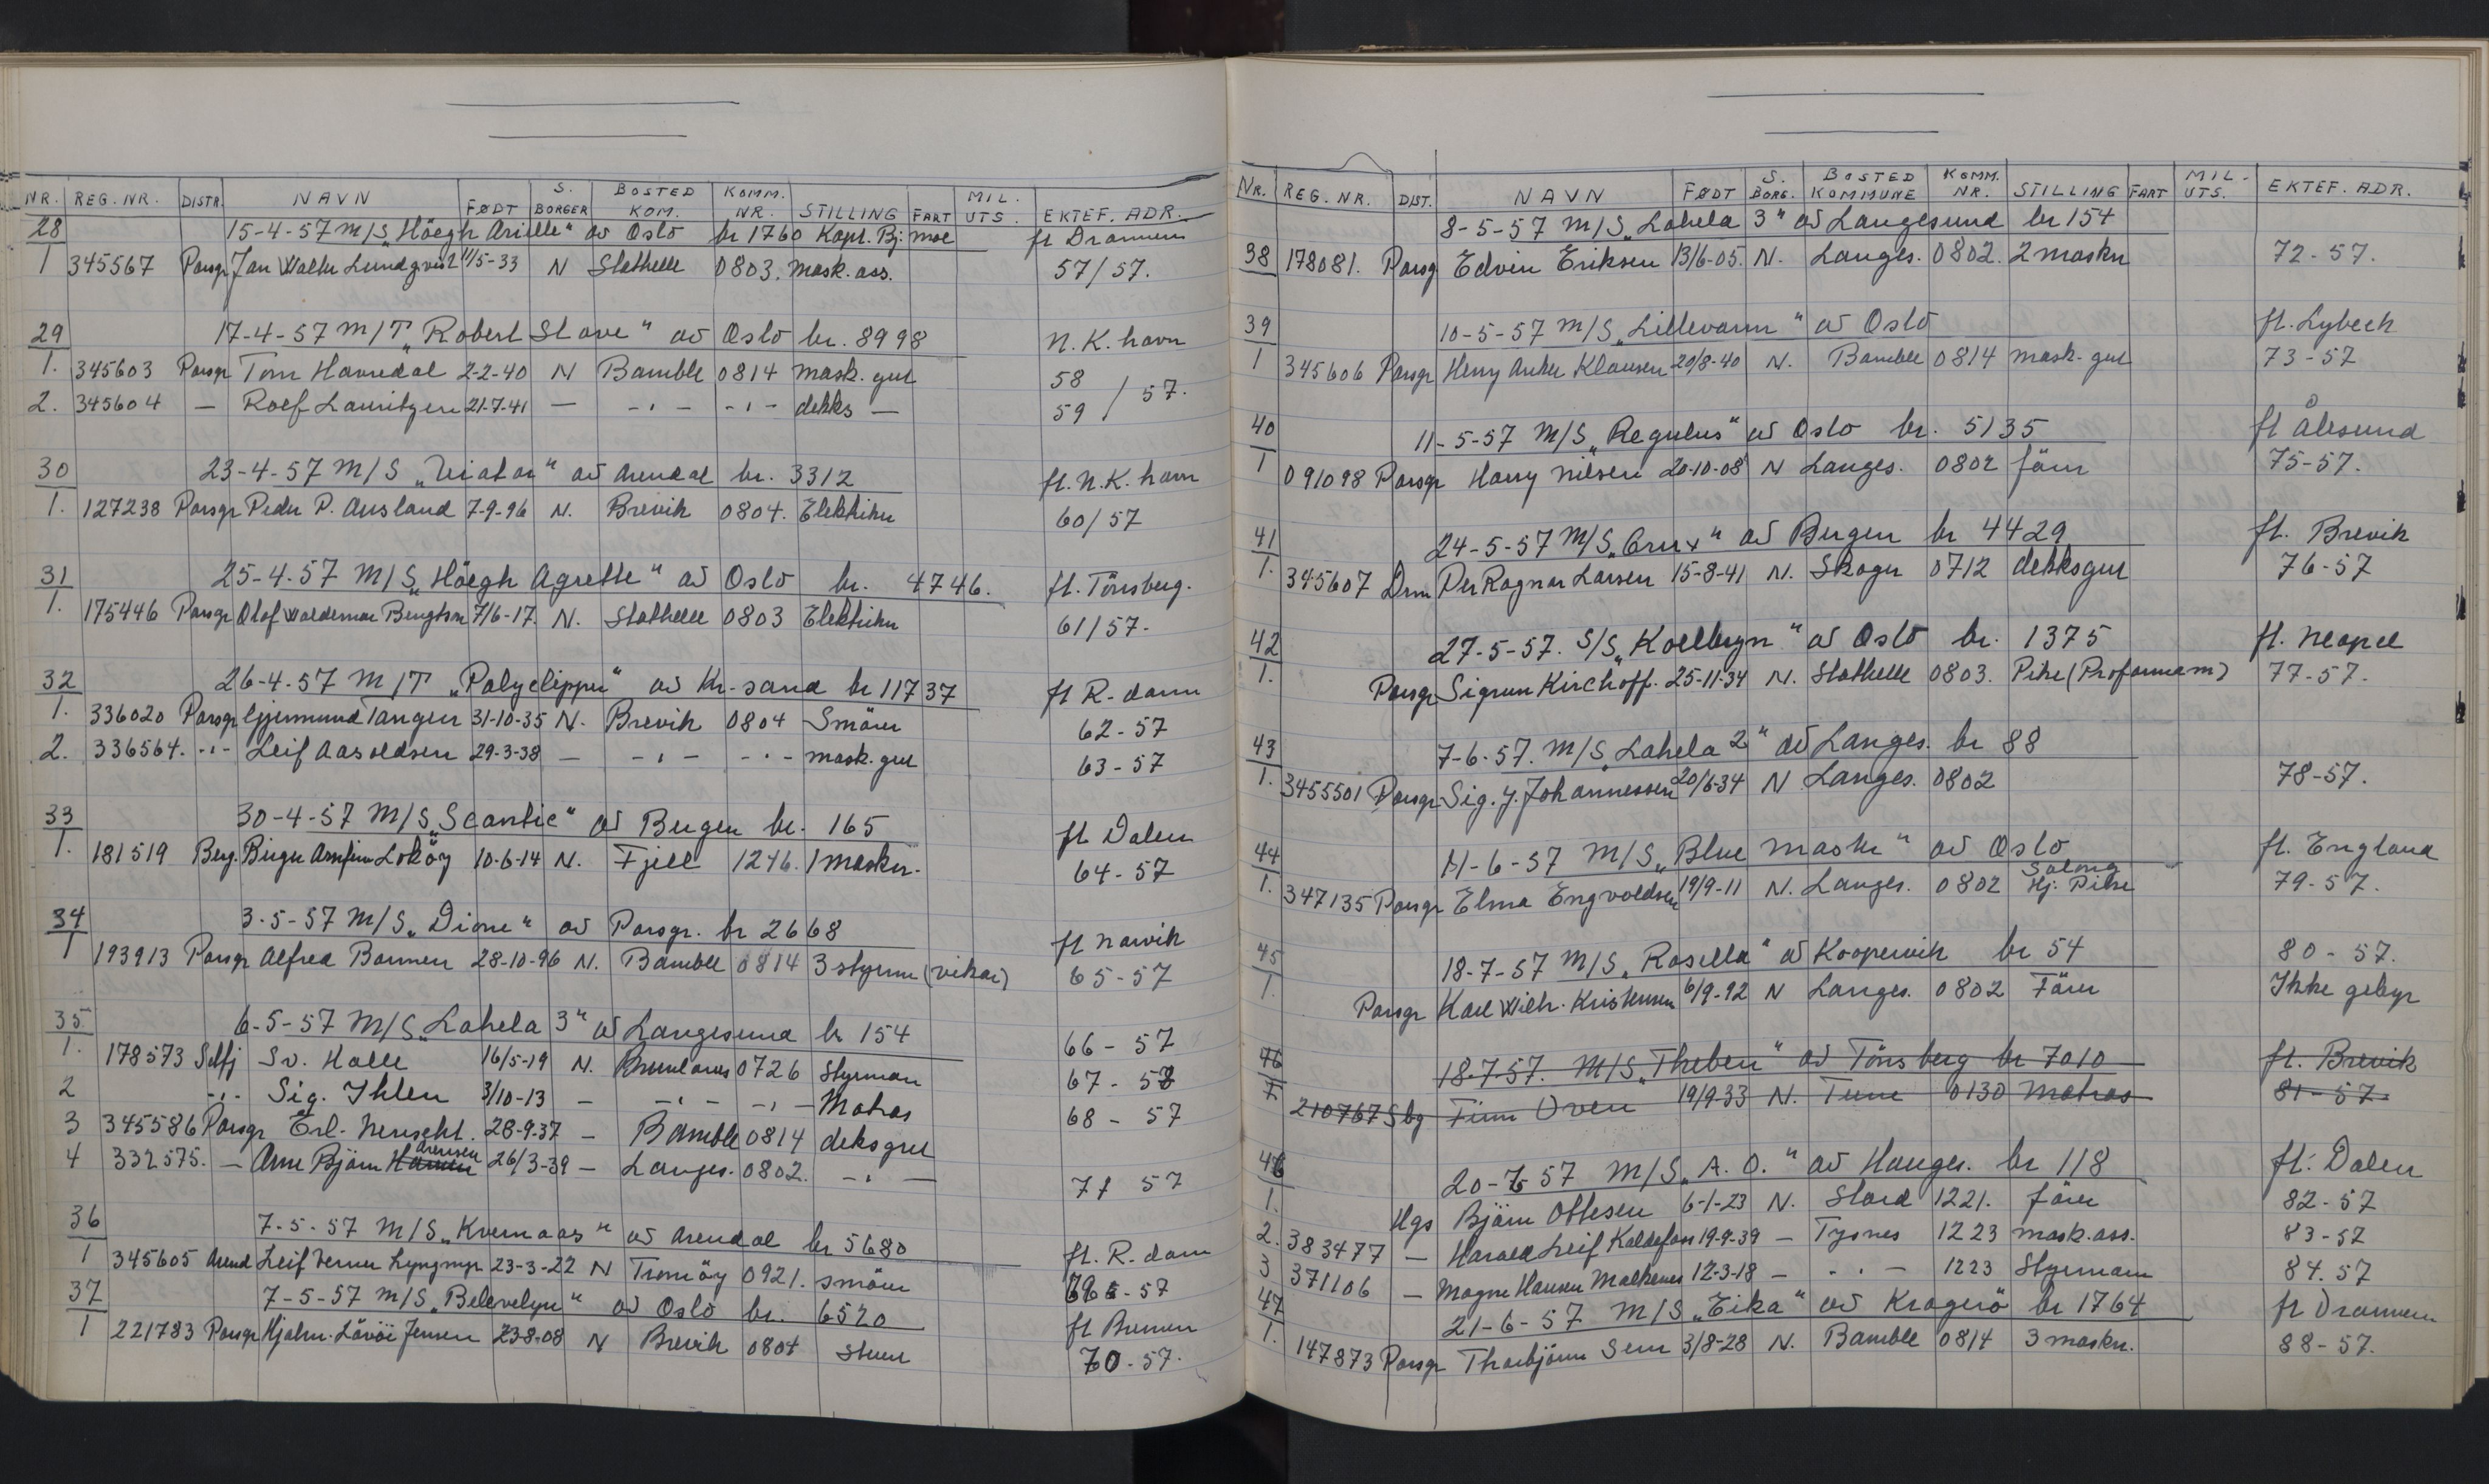 NR. REG. NR. DISTR. NAVN FØDT S. BORGER BOSTED KOM. KOMM. NR. STILLING FART MIL. UTS. EKTEF. ADR.
28 15-4-57 M/S „Höegh Arielle" av Oslo br 1760 Kapt. Bj. Moe ft Drammen
1 345567 Porsgr Jan Walter Lundqvist 11/5-33 N Stathelle 0803. mask. ass. 57/57.
29 17-4-57 M/T „Robert Stove" av Oslo br. 8998 N. K. havn
1. 345603 Porsgr Tom Havredal 2-2-40 N Bamble 0814 mask. gut 58 / 57.
2. 345604 — Rolf Lauritzen 21-7-41 — - „ - - „ - dekks — 59
30 23-4-57 M/S „Viator" av Arendal br. 3312 ft. N. K. havn
1. 127238 Porsgr Peder P. Ausland 7-9-96 N. Brevik 0804. Elektiker 60/57
31 25-4-57 M/S „Höegh Agrette" av Oslo br. 4746. ft. Tönsberg.
1. 175446 Porsgr Olof Waldemar Bengtson 7/6-17. N. Stathelle 0803 Elektriker 61/57.
32 26-4-57 M/T „Polyclipper" av Kr-sand br 11737 ft R-dam
1. 336020 Porsgr Gjermund Tangen 31-10-35 N. Brevik 0804 Smörer 62-57
2. 336564. -„- Leif Aasoldsen 29-3-38 — - „ - - „ - mask. gut 63-57
33 30-4-57 M/S „Scantic" av Bergen br. 165 ft Dalen
1. 181519 Berg. Birger Arnfinn Loköy 10-6-14 N. Fjell 1246. 1 maskn. 64-57
34 3-5-57 M/S „Dione" av Porsgr. br 2668 ft Narvik
1 193913 Porsgr Alfred Bonnen 28-10-96 N. Bamble 0814 3 styrm (vikar) 65-57
35 6-5-57 M/S „Lahela 3" av Langesund br 154
1. 178573 Selfj Sv. Halle 16/5-19 N. Brunlanes 0726 Styrman 66-57
2 -„- Sig. Ihlen 3/10-13 — - „ - - „ - Matros 67-58
3 345586 Porsgr Erl. Nenseht. 28-9-37 — Bamble 0814 deksgut 68-57
4 332575. — Arne Björn Hansen Arensen 26/3-39 — Langes. 0802. - „ - 71 57
36 7-5-57 M/S „Kvernaas" av Arendal br 5680 ft. R-dam
1 345605 Arend Leif Verner Lyngmyr 23-3-22 N Tromöy 0921. smörer 69-57
37 7-5-57 M/S „Belevelyn" av Oslo br. 6520 ft Bremen
1 221783 Porsgr Hjalm. Lövöi Jensen 23-8-08 N Brevik 0804 Stuert 70-57.
NR. REG. NR. DIST. NAVN FØDT S. BORG. BOSTED KOMMUNE KOMM. NR. STILLING FART MIL- UTS. EKTEF. ADR.
8-5-57 M/S „Lahela 3" av Langesund br 154
38 178081. Porsg Edvin Eriksen 13/6-05. N. Langes. 0802. 2 maskn 72-57.
39 10-5-57 M/S „Lillevann" av Oslo ft. Lybech
1 345606 Porsgr Henry Anker Klausen 20/8-40 N. Bamble 0814 mask-gut 73-57
40 11-5-57 M/S „Regulus" av Oslo br. 5135 ft Ålesund
1 091098 Porsgr Harry Nilsen 20-10-08 N Langes. 0802 förer 75-57.
41 24-5-57 M/S „Crux" av Bergen br 4429 ft. Brevik
1. 345607 Drm Per Ragnar Larsen 15-8-41 N. Skoger 0712 dekksgut 76-57
42 27-5-57. S/S „Kollbryn" av Oslo br. 1375 ft. Neapel
1. Porsgr Sigrun Kirchoff. 25-11-34 N. Stathelle 0803. Pike (Proformam) 77-57.
43 7-6-57. M/S „Lahela 2" av Langes. br 88
1. 3455501 Porsgr. Sig. J. Johannessen 20/6-34 N Langes. 0802 78-57.
44 11-6-57 M/S „Blue Master" av Oslo ft. England
1. 347135 Porsgr Elma Engvoldsen 19/9-11 N. Langes. 0802 Salong Hj. Pike 79-57.
45 18-7-57 M/S „Rosella" av Koopervik br 54 80-57.
1. Porsgr Karl Wilh. Kristensen 6/9-92 N Langes. 0802 Förer Ikke gebyr
46 18-7-57. M/S „Theben" av Tönsberg br 7010 ft. Brevik
1. 210767 Sbg Finn Oven 19/9-33 N. Tune 0130 Matros 81-57.
46 20-7-57 M/S „A. O." av Hauges. br 118 ft. Dalen
1. Hgs Björn Ottesen 6-1-23 N. Stord 1221. förer 82-57
2. 383477 — Harald Leif Kaldefoss 19-9-39 — Tysnes 1223 mask. ass. 83-57
3 371106 — Magne Hansen Malkenes 12-3-18 — - „ - 1223 Styrmann 84.57
47 21-6-57 M/S „Eika" av Kragerö br 1764 ft Drammen
1. 147873 Porsgr Thorbjörn Sem 3/8-28 N. Bamble 0814 3 maskn. 88-57.